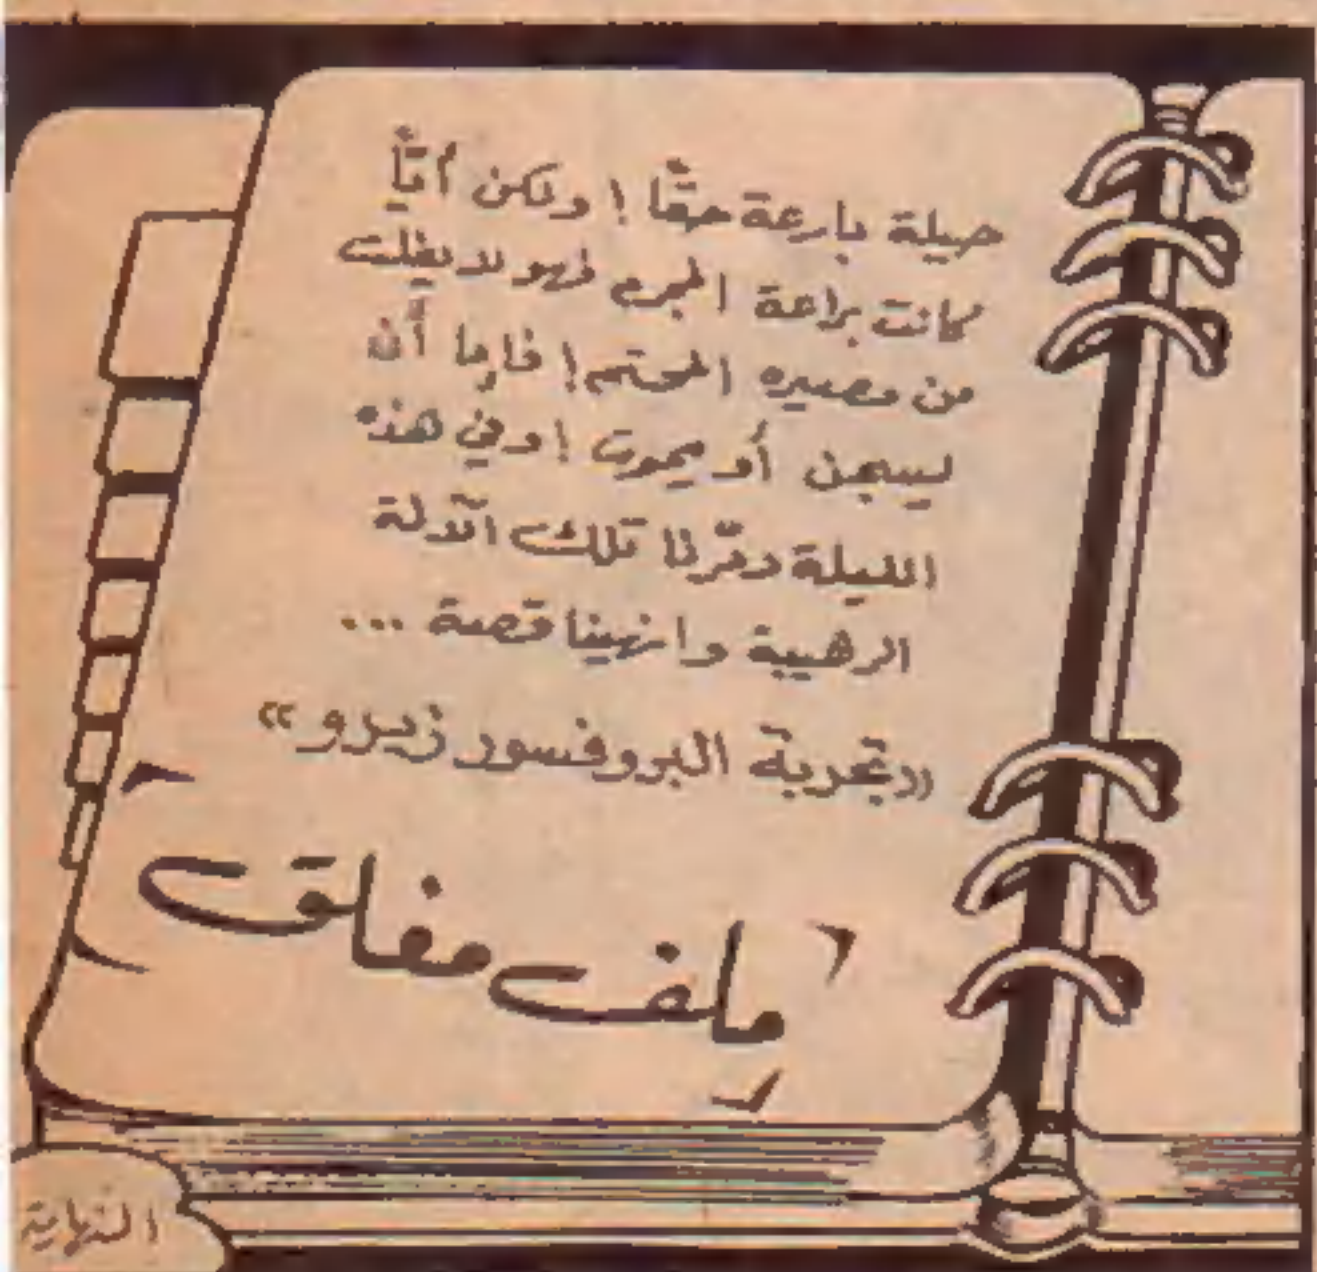 حيلة بارعة حقًّا ! ولكن أيًّا
كانت براعة المجرم فهو لا يفلت
من مصيره المحتم ! فإما أن
يسجن أو يموت ! وفي هذه
الليلة دمّرنا تلك الآلة
الرهيبة وانهينا قصة ...
«تجربة البروفسور زيرو»
ملف مغلق
النهاية